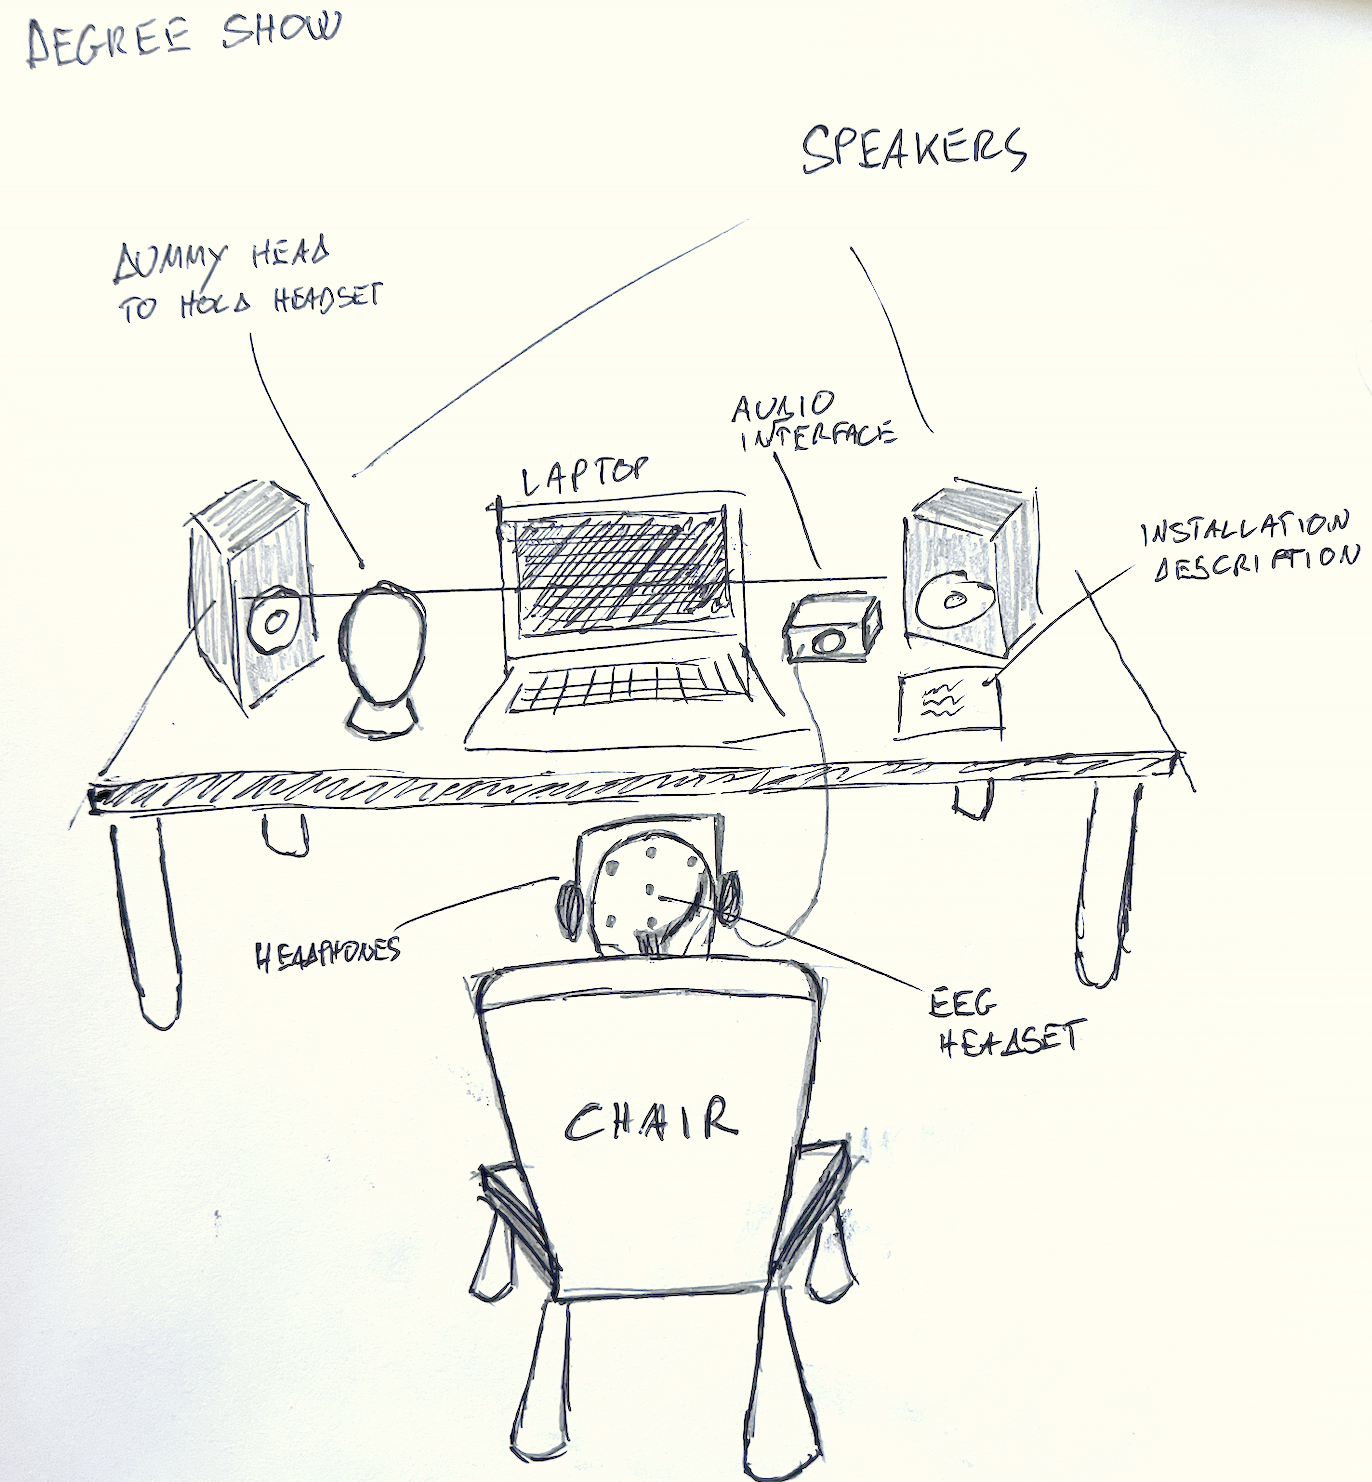 DEGREE SHOW
SPEAKERS
DUMMY HEAD
TO HOLD HEADSET
AUDIO
INTERFACE
LAPTOP
INSTALLATION
DESCRIPTION
HEADPHONES
EEG
HEADSET
CHAIR